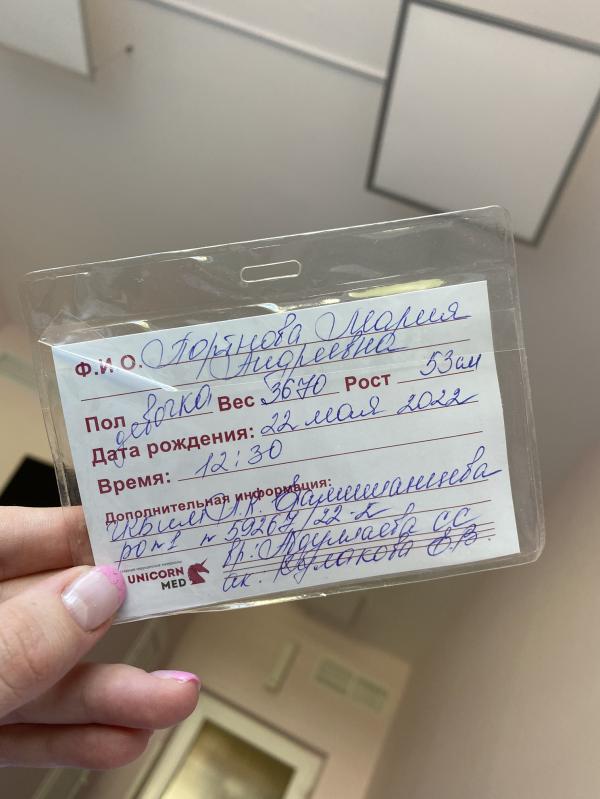 Ф.И.О. Портнова Мария
Андреевна
Пол девочка Вес 3670 Рост 53 см
Дата рождения: 22 мая 2022
Время: 12:30
Дополнительная информация:
№ 59267/22
Вр.
ак. Кулакова Е.В.
UNICORN
MED